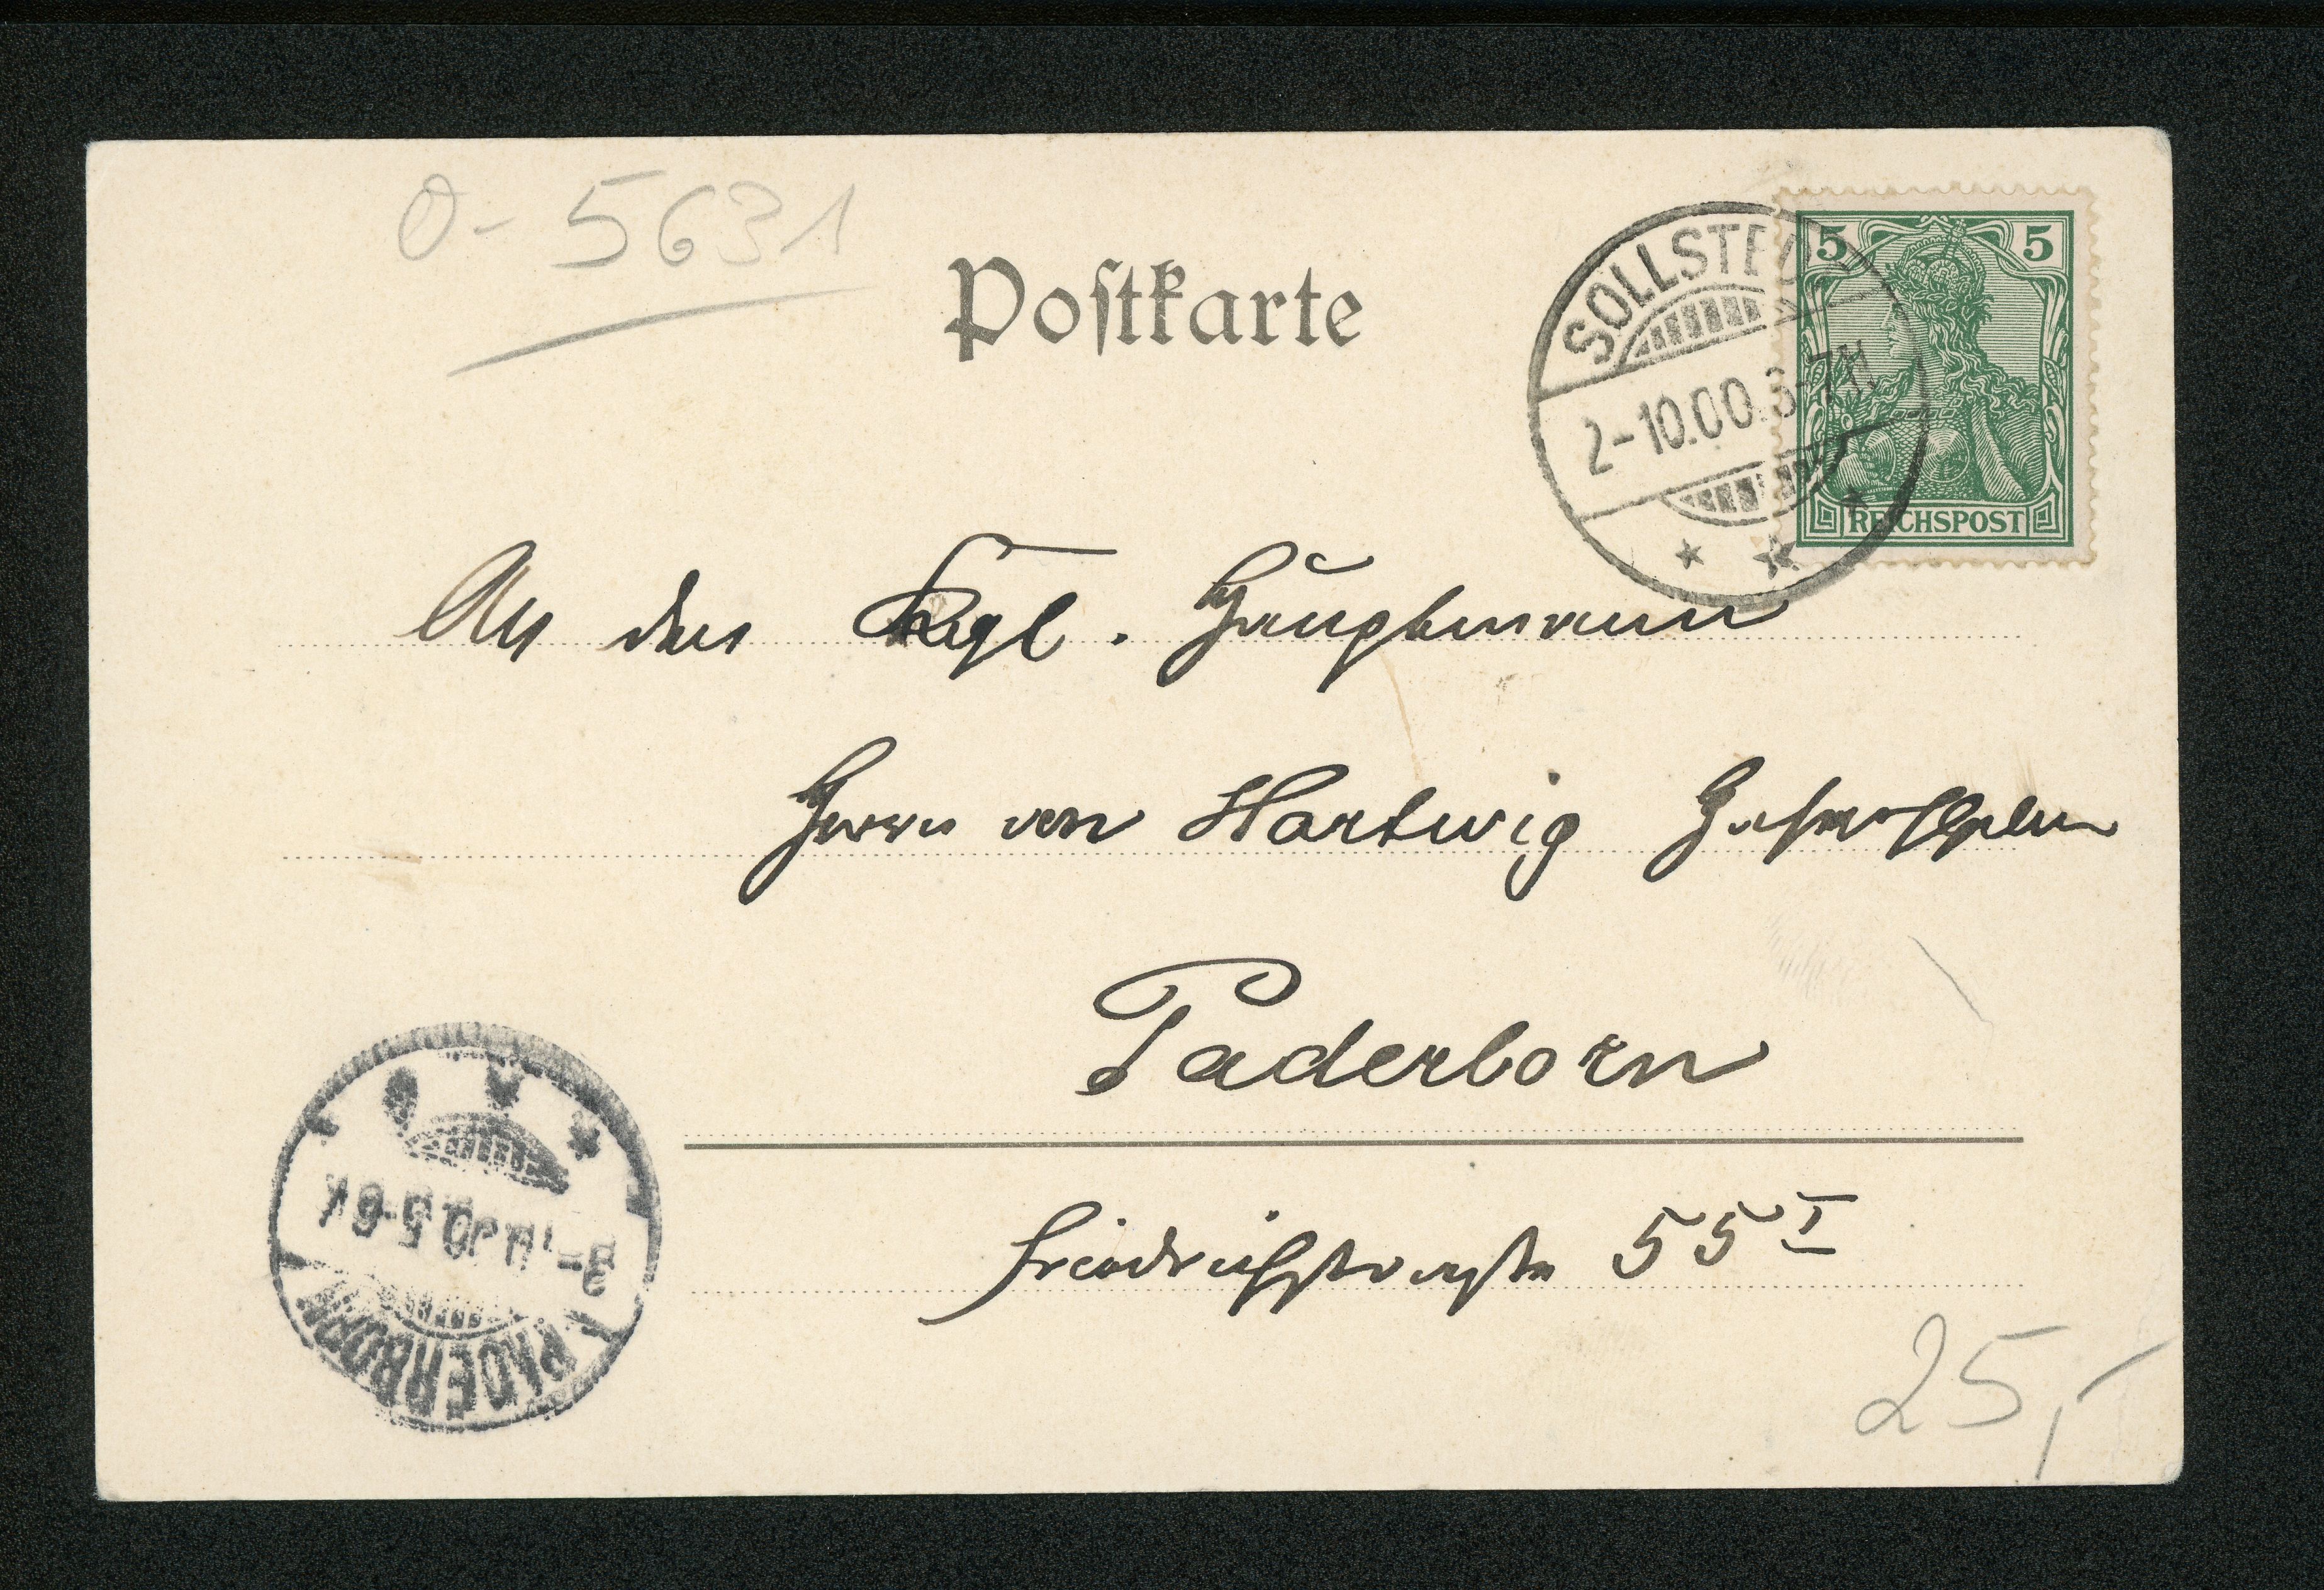 0-5631
Postkarte
SOLLSTEDT
2-10.00.6-7N
5 5
REICHSPOST
An den Kgl. Hauptmann
Herrn von Hartwig Hochwohlgeboren
Paderborn
Friedrichstraße 55 I
PADERBORN
25,-